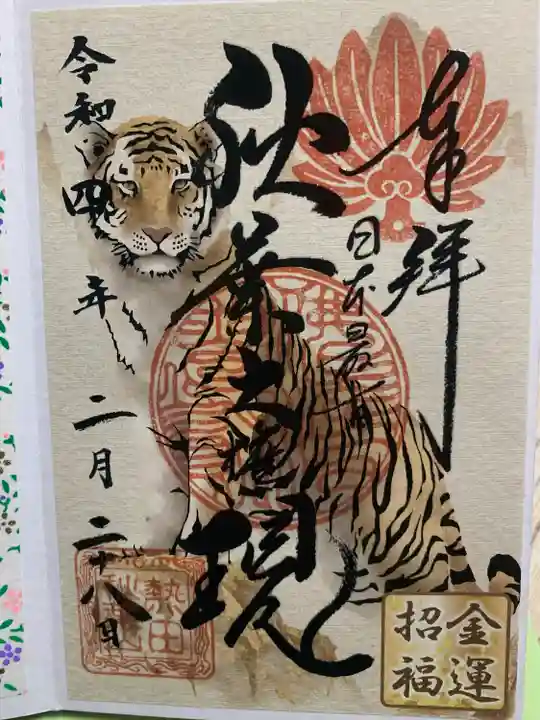 奉拝
日本最古
秋葉大権現
令和四年
二月二十八日
熱田
金運
招福